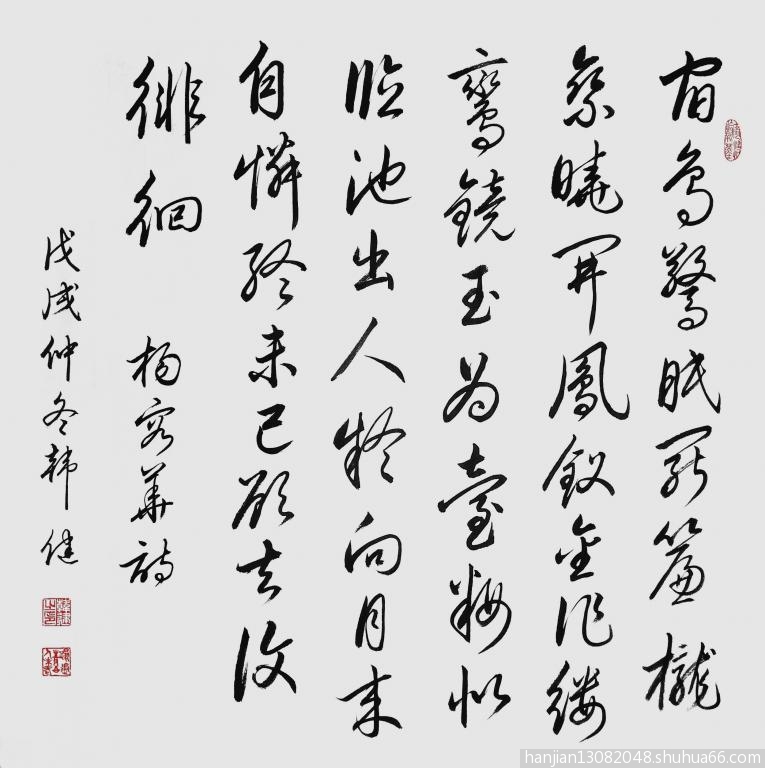 宿鳥驚眠罷簾櫳
乘曉開鳳釵金作縷
鸞鏡玉為臺粧似
臨池出人疑向月來
自憐終未已欲去復
徘徊 楊容華詩
戊戌仲冬韓健
hanjian13082048.shuhua66.com